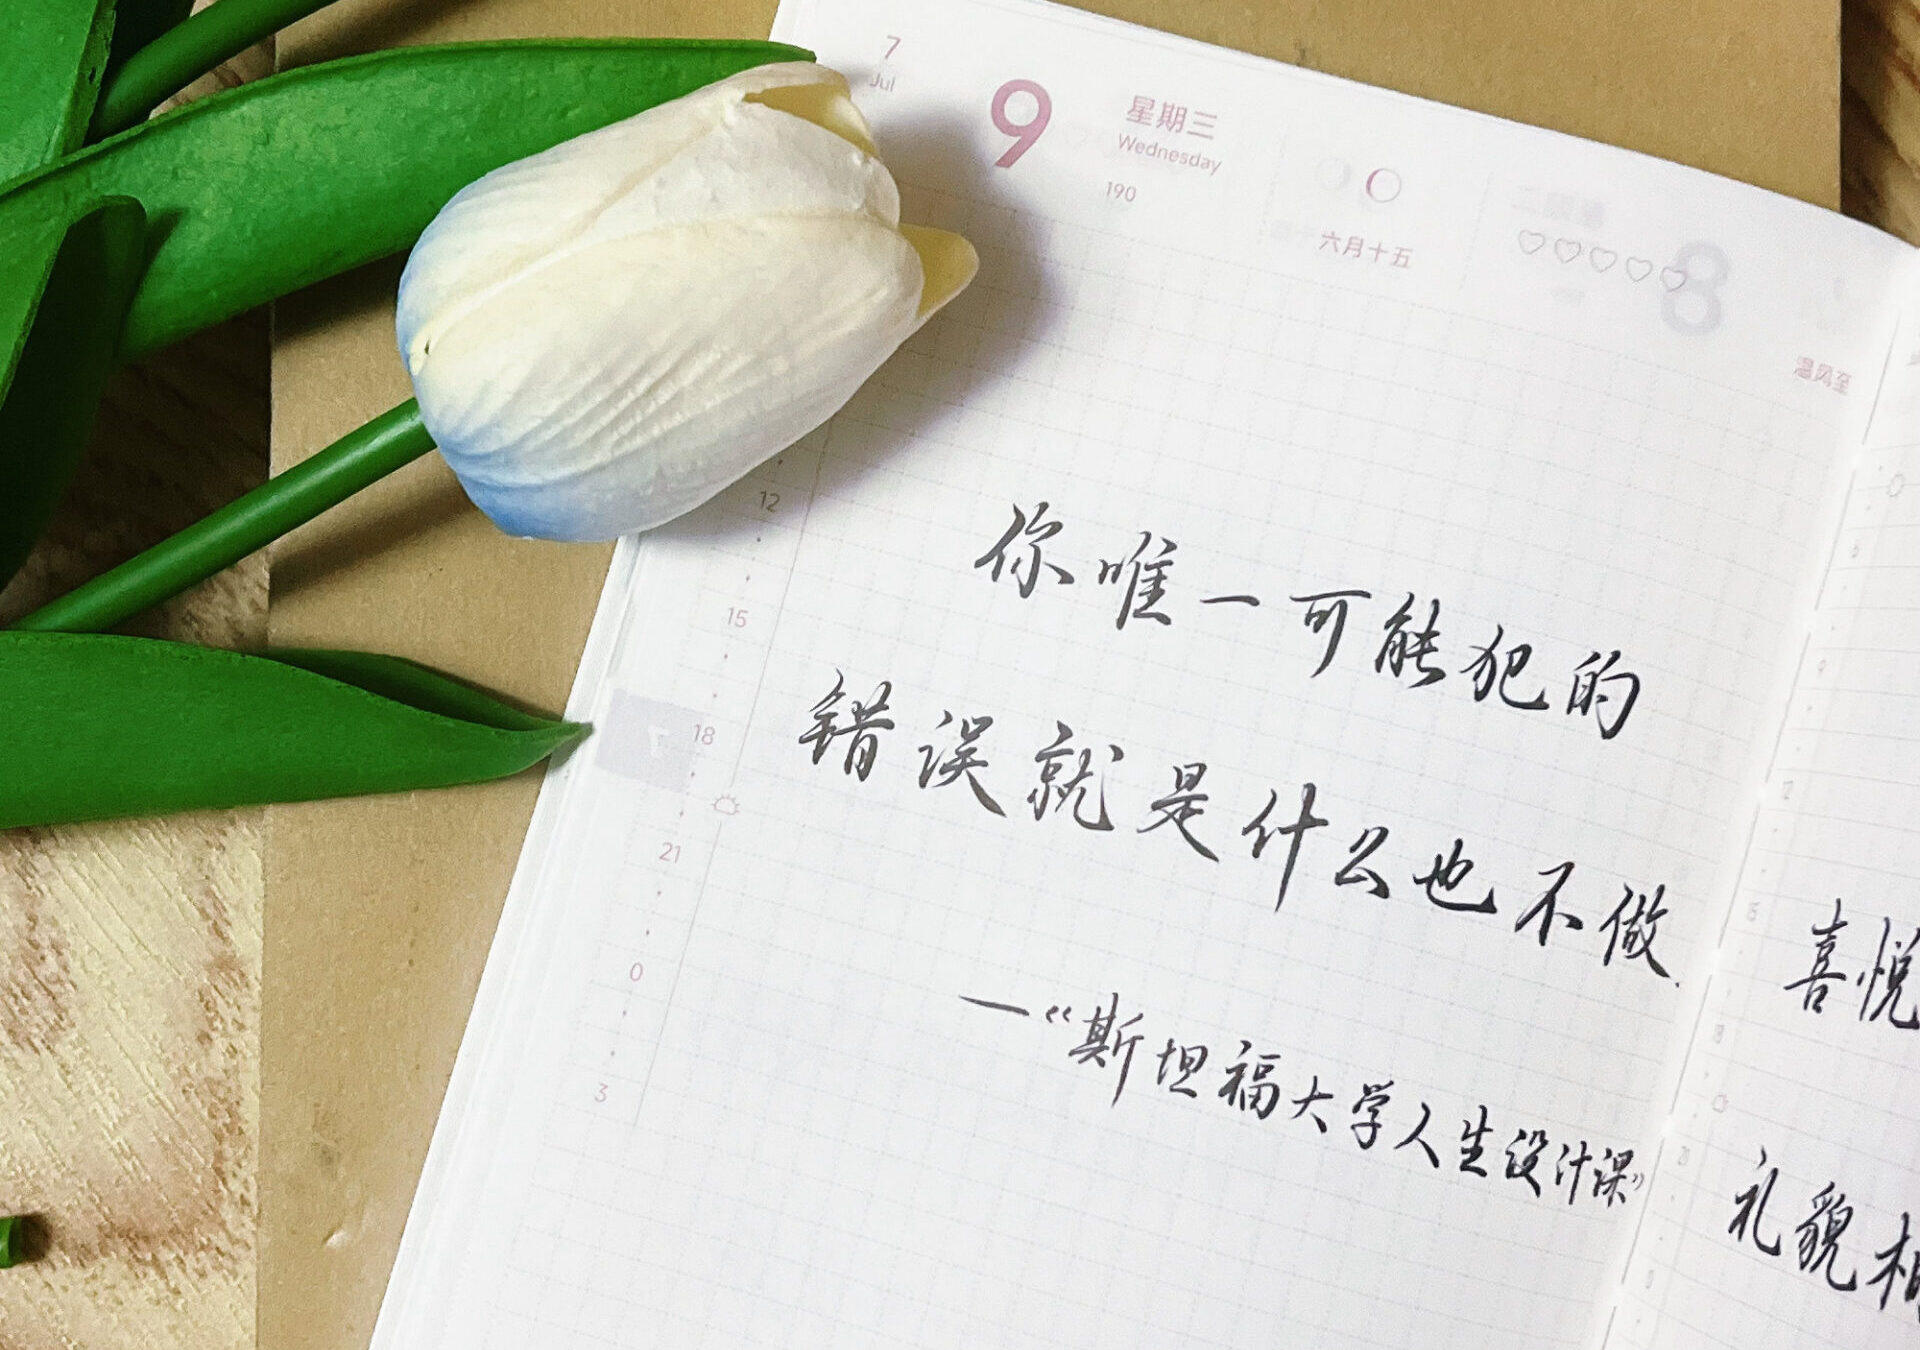 7
Jul
9
星期三
Wednesday
190
六月十五
8
温风至
12
15
18
7
21
0
3
你唯一可能犯的
错误就是什么也不做.
—“斯坦福大学人生设计课”
喜悦
礼貌相